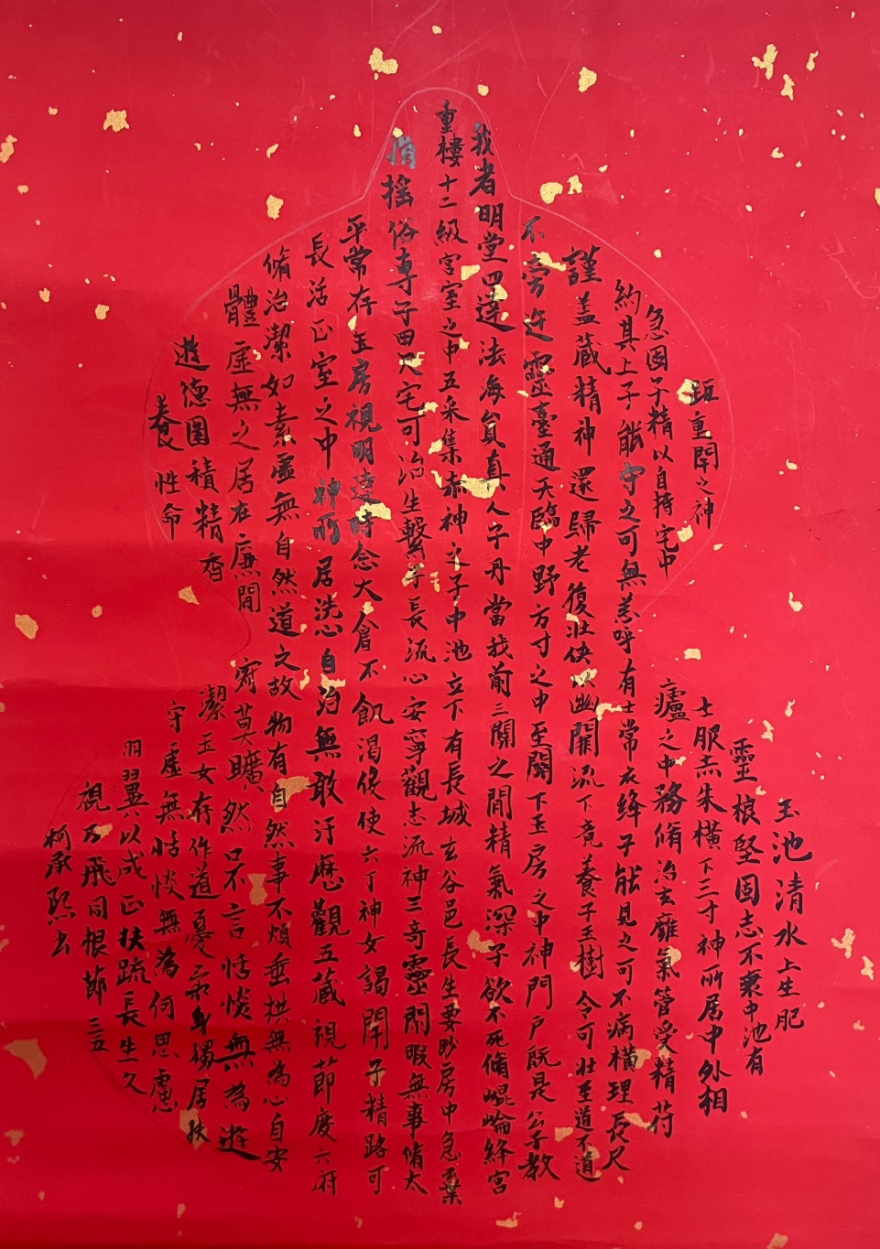 玉池清水上生肥
靈根堅固志不衰中池有
士服赤朱橫下三寸神所居中外相
距重閇之神
廬之中務脩治玄廱氣管受精苻
急固子精以自持宅中
有士常衣絳子能見之可不病橫理長尺
約其上子能守之可無恙呼
謹蓋藏精神還歸老復壯俠以幽闕流下竟養子玉樹令可壯至道不道
不旁迕靈臺通天臨中野方寸之中至關下玉房之中神門戶既是公子教
我者明堂四達法海員真人子丹當我前三關之間精氣深子欲不死脩崐崘絳宮
重樓十二級宮室之中五采集赤神之子中池立下有長城玄谷邑長生要眇房中急棄
捐搖俗專子田尺宅可治生繫子長流心安寧觀志流神三奇靈閑暇無事脩太
平常存玉房視明達時念大倉不飢渴役使六丁神女謁閇子精路可
長活正室之中神所居洗心自治無敢汙歷觀五藏視節度六府
脩治潔如素虛無自然道之故物有自然事不煩垂拱無為心自安
體虛無之居在廉間
寂莫曠然口不言恬惔無為遊
遊德園積精香
潔玉女存作道憂柔身獨居扶
養性命
守虛無恬惔無為何思慮
羽翼以成正扶疏長生久
視乃飛同根節三五
柯承熙書